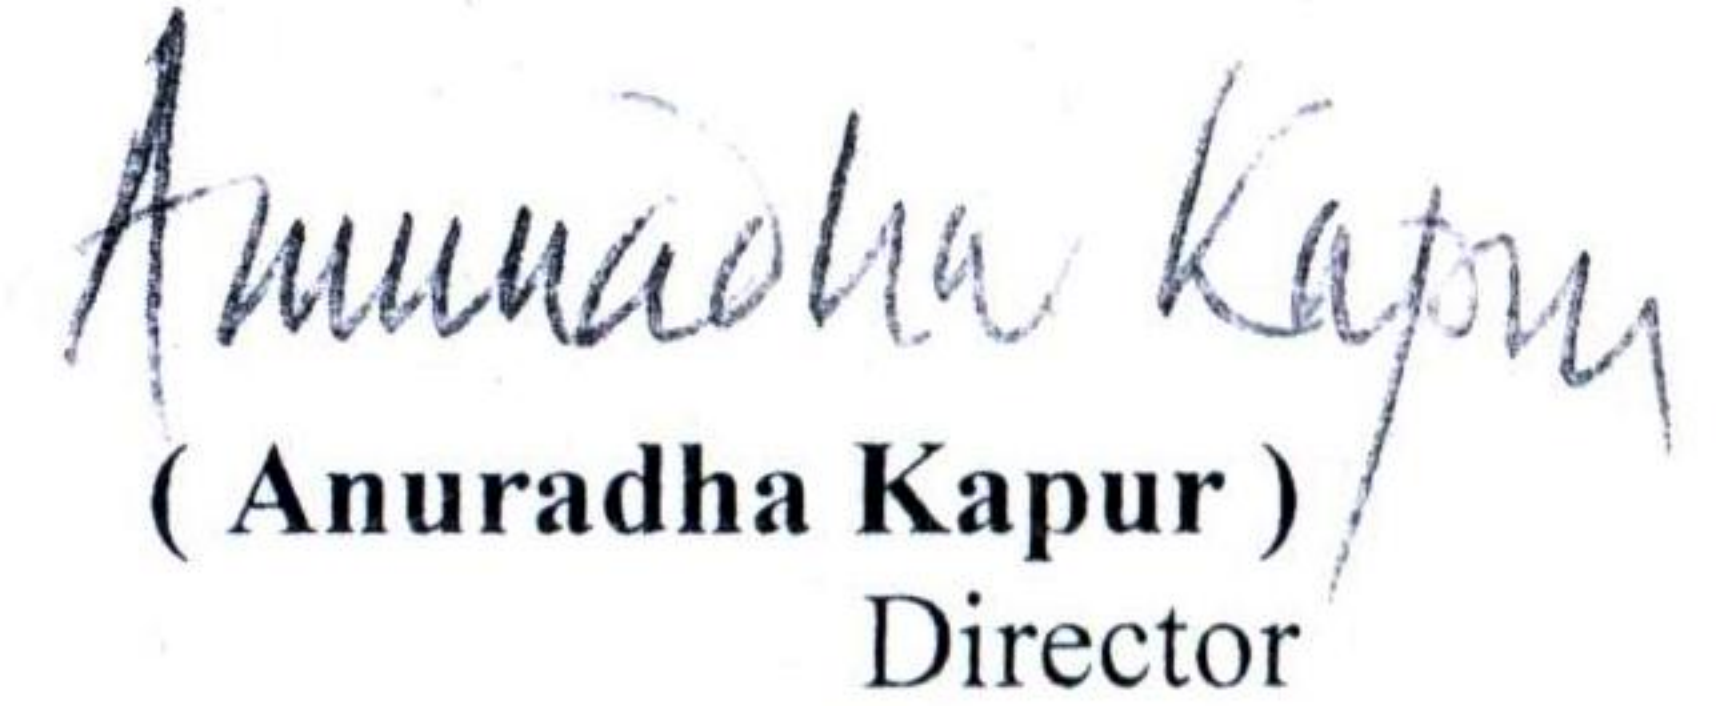 Anuradha Kapur
( Anuradha Kapur )
Director